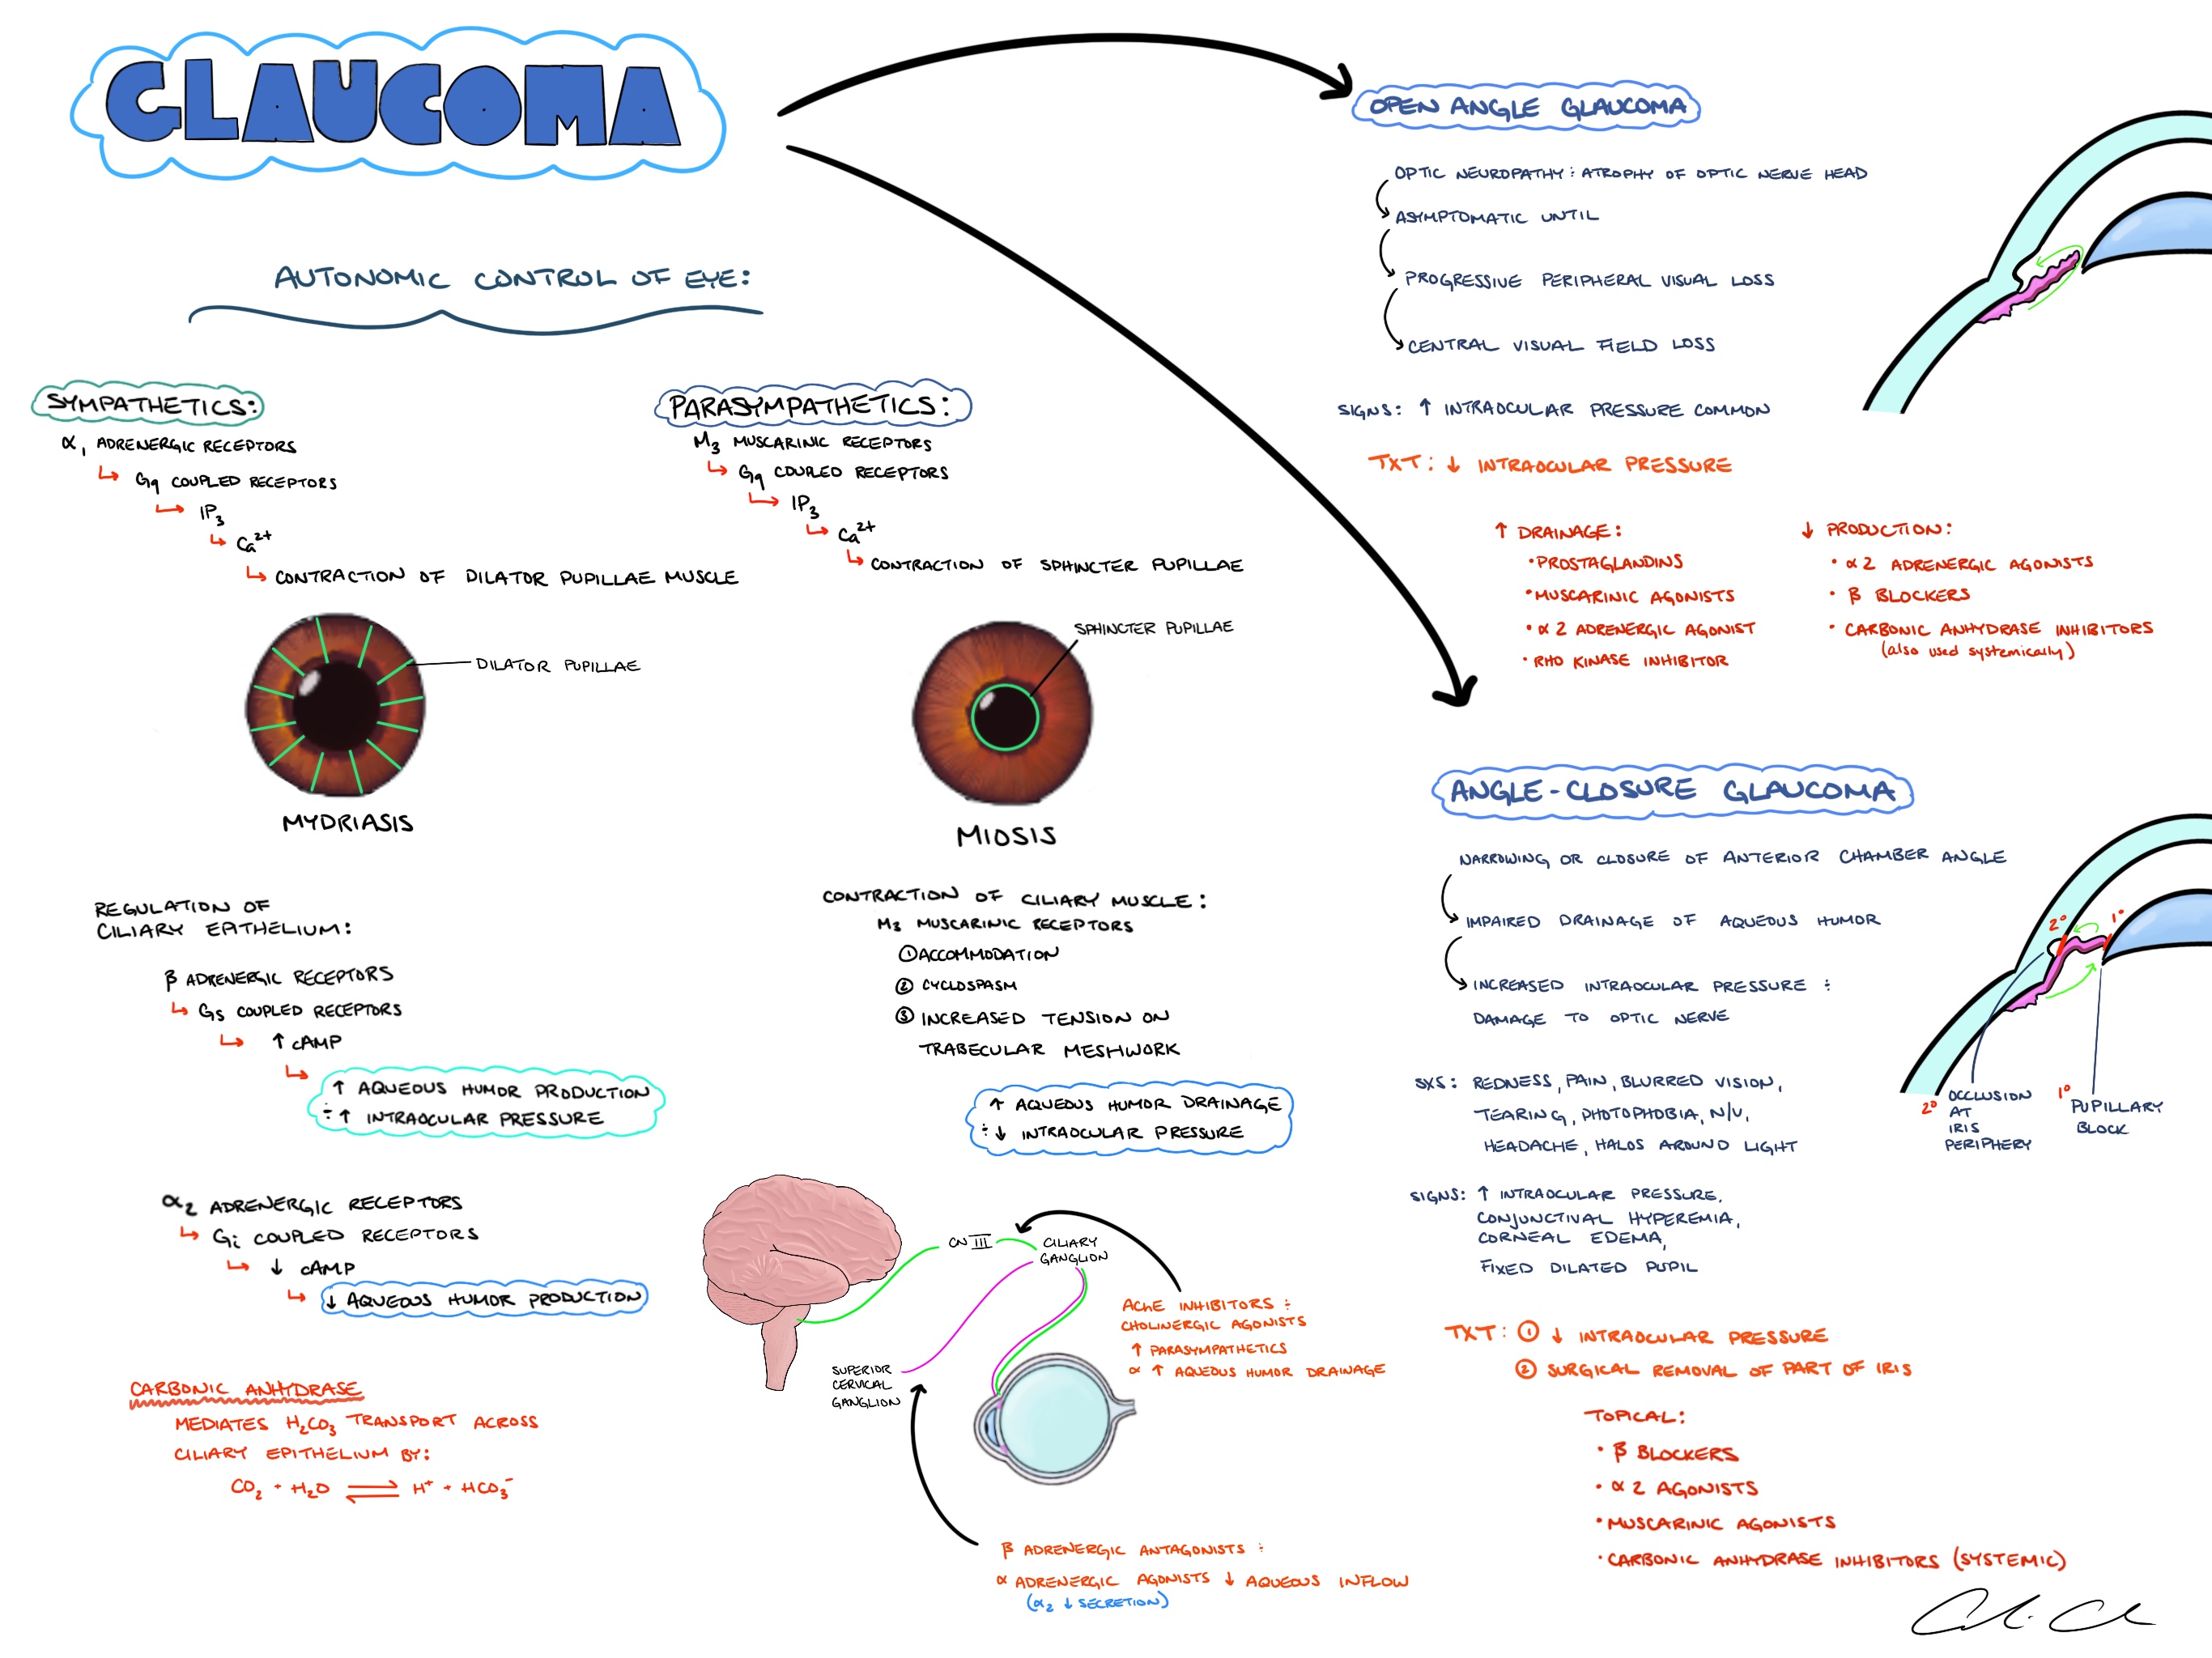 GLAUCOMA
AUTONOMIC CONTROL OF EYE:
SYMPATHETICS:
α1 ADRENERGIC RECEPTORS
Gq COUPLED RECEPTORS
IP3
Ca2+
CONTRACTION OF DILATOR PUPILLAE MUSCLE
DILATOR PUPILLAE
MYDRIASIS
REGULATION OF
CILIARY EPITHELIUM:
β ADRENERGIC RECEPTORS
Gs COUPLED RECEPTORS
↑ cAMP
↑ AQUEOUS HUMOR PRODUCTION
∴ ↑ INTRAOCULAR PRESSURE
α2 ADRENERGIC RECEPTORS
Gi COUPLED RECEPTORS
↓ cAMP
↓ AQUEOUS HUMOR PRODUCTION
CARBONIC ANHYDRASE
MEDIATES H2CO3 TRANSPORT ACROSS
CILIARY EPITHELIUM BY:
CO2 + H2O ⇌ H+ + HCO3-
PARASYMPATHETICS:
M3 MUSCARINIC RECEPTORS
Gq COUPLED RECEPTORS
IP3
Ca2+
CONTRACTION OF SPHINCTER PUPILLAE
SPHINCTER PUPILLAE
MIOSIS
CONTRACTION OF CILIARY MUSCLE:
M3 MUSCARINIC RECEPTORS
① ACCOMMODATION
② CYCLOSPASM
③ INCREASED TENSION ON
TRABECULAR MESHWORK
↑ AQUEOUS HUMOR DRAINAGE
∴ ↓ INTRAOCULAR PRESSURE
CN III
CILIARY
GANGLION
SUPERIOR
CERVICAL
GANGLION
AChE INHIBITORS ÷
CHOLINERGIC AGONISTS
↑ PARASYMPATHETICS
∝ ↑ AQUEOUS HUMOR DRAINAGE
β ADRENERGIC ANTAGONISTS ÷
α ADRENERGIC AGONISTS ↓ AQUEOUS INFLOW
(α2 ↓ SECRETION)
OPEN ANGLE GLAUCOMA
OPTIC NEUROPATHY ÷ ATROPHY OF OPTIC NERVE HEAD
ASYMPTOMATIC UNTIL
PROGRESSIVE PERIPHERAL VISUAL LOSS
CENTRAL VISUAL FIELD LOSS
SIGNS: ↑ INTRAOCULAR PRESSURE COMMON
TXT: ↓ INTRAOCULAR PRESSURE
↑ DRAINAGE:
• PROSTAGLANDINS
• MUSCARINIC AGONISTS
• α2 ADRENERGIC AGONIST
• RHO KINASE INHIBITOR
↓ PRODUCTION:
• α2 ADRENERGIC AGONISTS
• β BLOCKERS
• CARBONIC ANHYDRASE INHIBITORS
(also used systemically)
ANGLE-CLOSURE GLAUCOMA
NARROWING OR CLOSURE OF ANTERIOR CHAMBER ANGLE
IMPAIRED DRAINAGE OF AQUEOUS HUMOR
INCREASED INTRAOCULAR PRESSURE ÷
DAMAGE TO OPTIC NERVE
SXS: REDNESS, PAIN, BLURRED VISION,
TEARING, PHOTOPHOBIA, N/V,
HEADACHE, HALOS AROUND LIGHT
SIGNS: ↑ INTRAOCULAR PRESSURE,
CONJUNCTIVAL HYPEREMIA,
CORNEAL EDEMA,
FIXED DILATED PUPIL
2° 1°
2° OCCLUSION
AT
IRIS
PERIPHERY
1° PUPILLARY
BLOCK
TXT: ① ↓ INTRAOCULAR PRESSURE
② SURGICAL REMOVAL OF PART OF IRIS
TOPICAL:
• β BLOCKERS
• α2 AGONISTS
• MUSCARINIC AGONISTS
• CARBONIC ANHYDRASE INHIBITORS (SYSTEMIC)